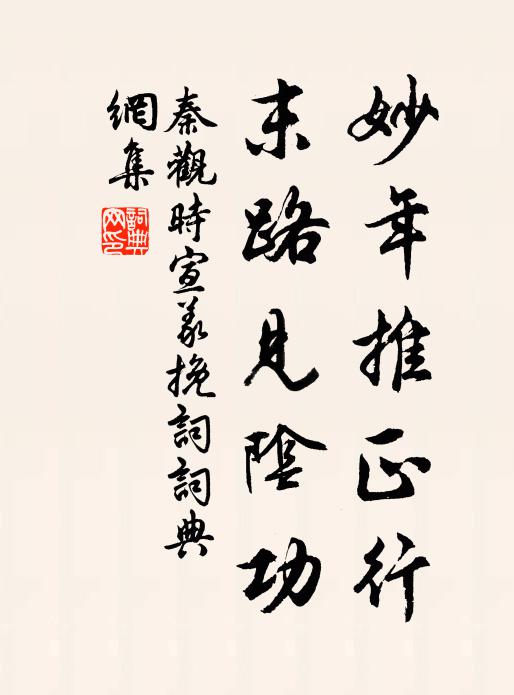 妙年推正行
末路見陰功
秦觀時宣義挽詞詞典
網集
詞典
网印